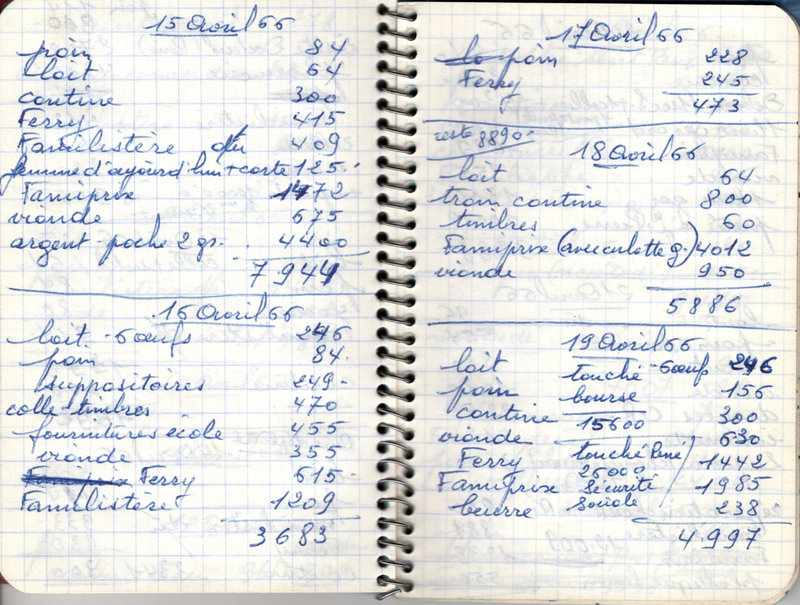 15 Avril 66
pain 84
lait 64
cantine 300
Ferry 415
Familistère du 409
femme d'aujourd'hui + carte 125
Famiprix 1472
viande 675
argent poche 2 gs. 4400
7944
16 Avril 66
lait - 6 œufs 246
pain 84
suppositoires 249
colle - timbres 470
fournitures école 455
viande 355
Famiprix Ferry 615
Familistère 1209
3683
17 Avril 66
pain 228
Ferry 245
473
reste 8890
18 Avril 66
lait 64
train cantine 800
timbres 60
Famiprix (avec culotte g.) 4012
viande 950
5886
19 Avril 66
lait - 6 œufs 246
pain 156
cantine 300
viande 630
Ferry 1442
Famiprix 1985
beurre 238
4997
touché
bourse
15600
touché René
26000
Sécurité
Sociale